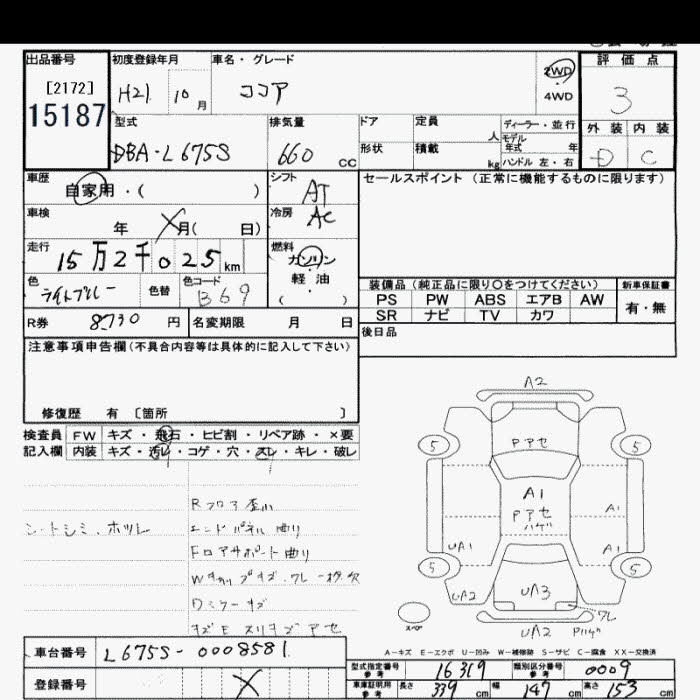 出品番号
[2172]
15187
初度登録年月
H21 10月
車名・グレード
ココア
2WD
4WD
評価点
3
外装 内装
D C
型式
DBA-L675S
排気量
660 cc
ドア
定員
人
形状
積載
kg
ディーラー・並行
モデル年式 年
ハンドル 左・右
車歴
自家用・( )
車検
年 月( 日)
走行
15万2千025km
色
ライトブルー
色替
色コード
B69
シフト
AT
冷房
AC
燃料
ガソリン
軽・油
( )
セールスポイント(正常に機能するものに限ります)
装備品(純正品に限り〇をつけてください)
新車保証書
PS PW ABS エアB AW
SR ナビ TV カワ
有・無
R券 8730 円
名変期限 月 日
後日品
注意事項申告欄(不具合内容等は具体的に記入して下さい)
修復歴 有 〔箇所 〕
検査員 FW キズ・飛石・ヒビ割・リペア跡・×要
記入欄 内装 キズ・汚レ・コゲ・穴・スレ・キレ・破レ
シートシミ・ホツレ
Rフロア歪ミ
エンドパネル曲り
Fロアサポート曲り
Dミラーキズ
A2
Pアセ
5 5
A1
Pアセ
ハゲ
A1
UA1
A1
5 5
UA2
UA3
A2
ワレ
スペア
UA2 Pハゲ
A-キズ E-エクボ U-凹み W-補修跡 S-サビ C-腐食 XX-交換済
車台番号 L675S-0008581
登録番号
型式指定番号 参考 16319
類別区分番号 参考 0009
車庫証明用 参考
長さ 339 cm 幅 147 cm 高さ 153 cm